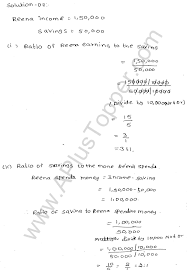 Solution-02:
Reena income = 1,50,000
Savings = 50,000
(i) Ratio of Reena earning to the savings
= 1,50,000
50,000
= 150000/10000
50000/10000
(divide to 10,000
15
5
= 3
= 3:1.
(ii) Ratio of savings to the money Reena spends
Reena spends money = Income-saving
= 1,50,000-50,000
= 1,00,000
Ratio of saving to Reena spending money
= 1,00,000
50,000
= 100,000/10,000
50,000/10,000